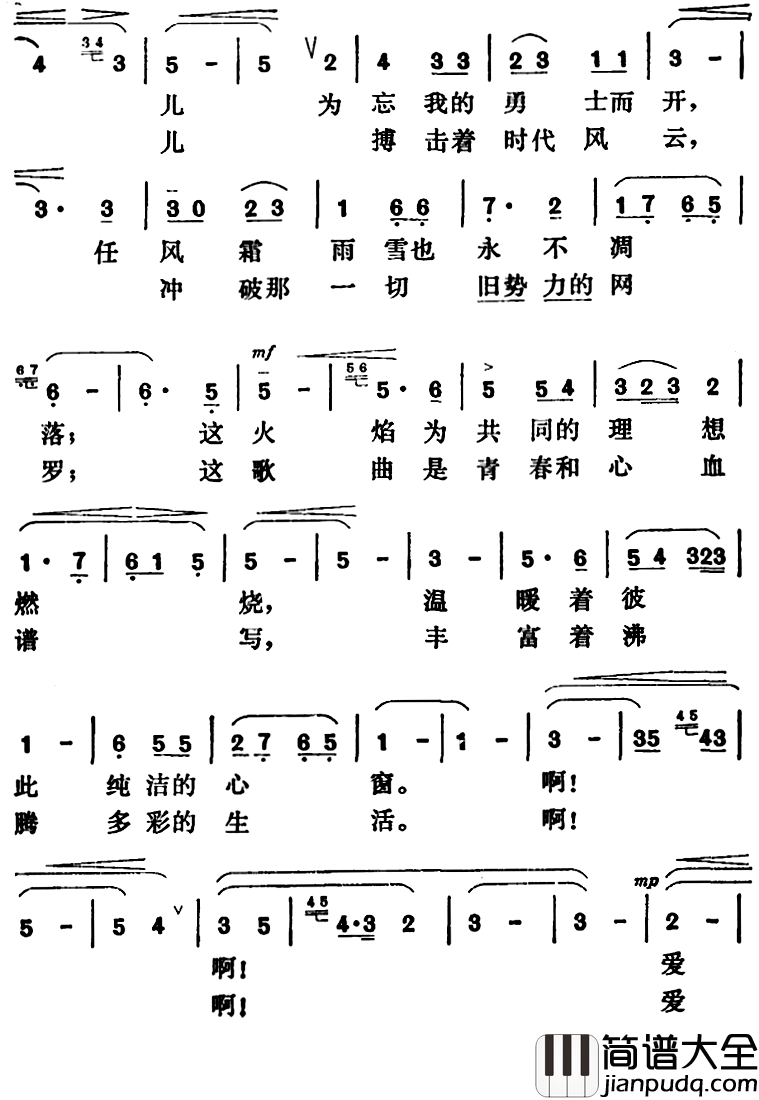 4 34 3 | 5 - | 5 V 2 | 4 33 | 23 11 | 3 - |
儿 为 忘 我的 勇 士而 开,
儿 搏 击着 时代 风 云,
3· 3 | 30 23 | 1 66 | 7· 2 | 17 65 |
任 风 霜 雨 雪也 永 不 凋
冲 破那 一 切 旧势 力的 网
mf
67 6 - | 6· 5 | 5 - | 56 5· 6 | 5 54 | 323 2 |
落; 这 火 焰 为 共 同的 理 想
罗; 这 歌 曲 是 青 春和 心 血
1· 7 | 61 5 | 5 - | 5 - | 3 - | 5· 6 | 54 323 |
燃 烧, 温 暖 着 彼
谱 写, 丰 富 着 沸
1 - | 6 55 | 27 65 | 1 - | 1 - | 3 - | 35 45 43 |
此 纯 洁的 心 窗。 啊!
腾 多 彩的 生 活。 啊!
mp
5 - | 5 4 V | 3 5 | 45 4·3 2 | 3 - | 3 - | 2 - |
啊! 爱
啊! 爱
简谱大全
jianpudq.com